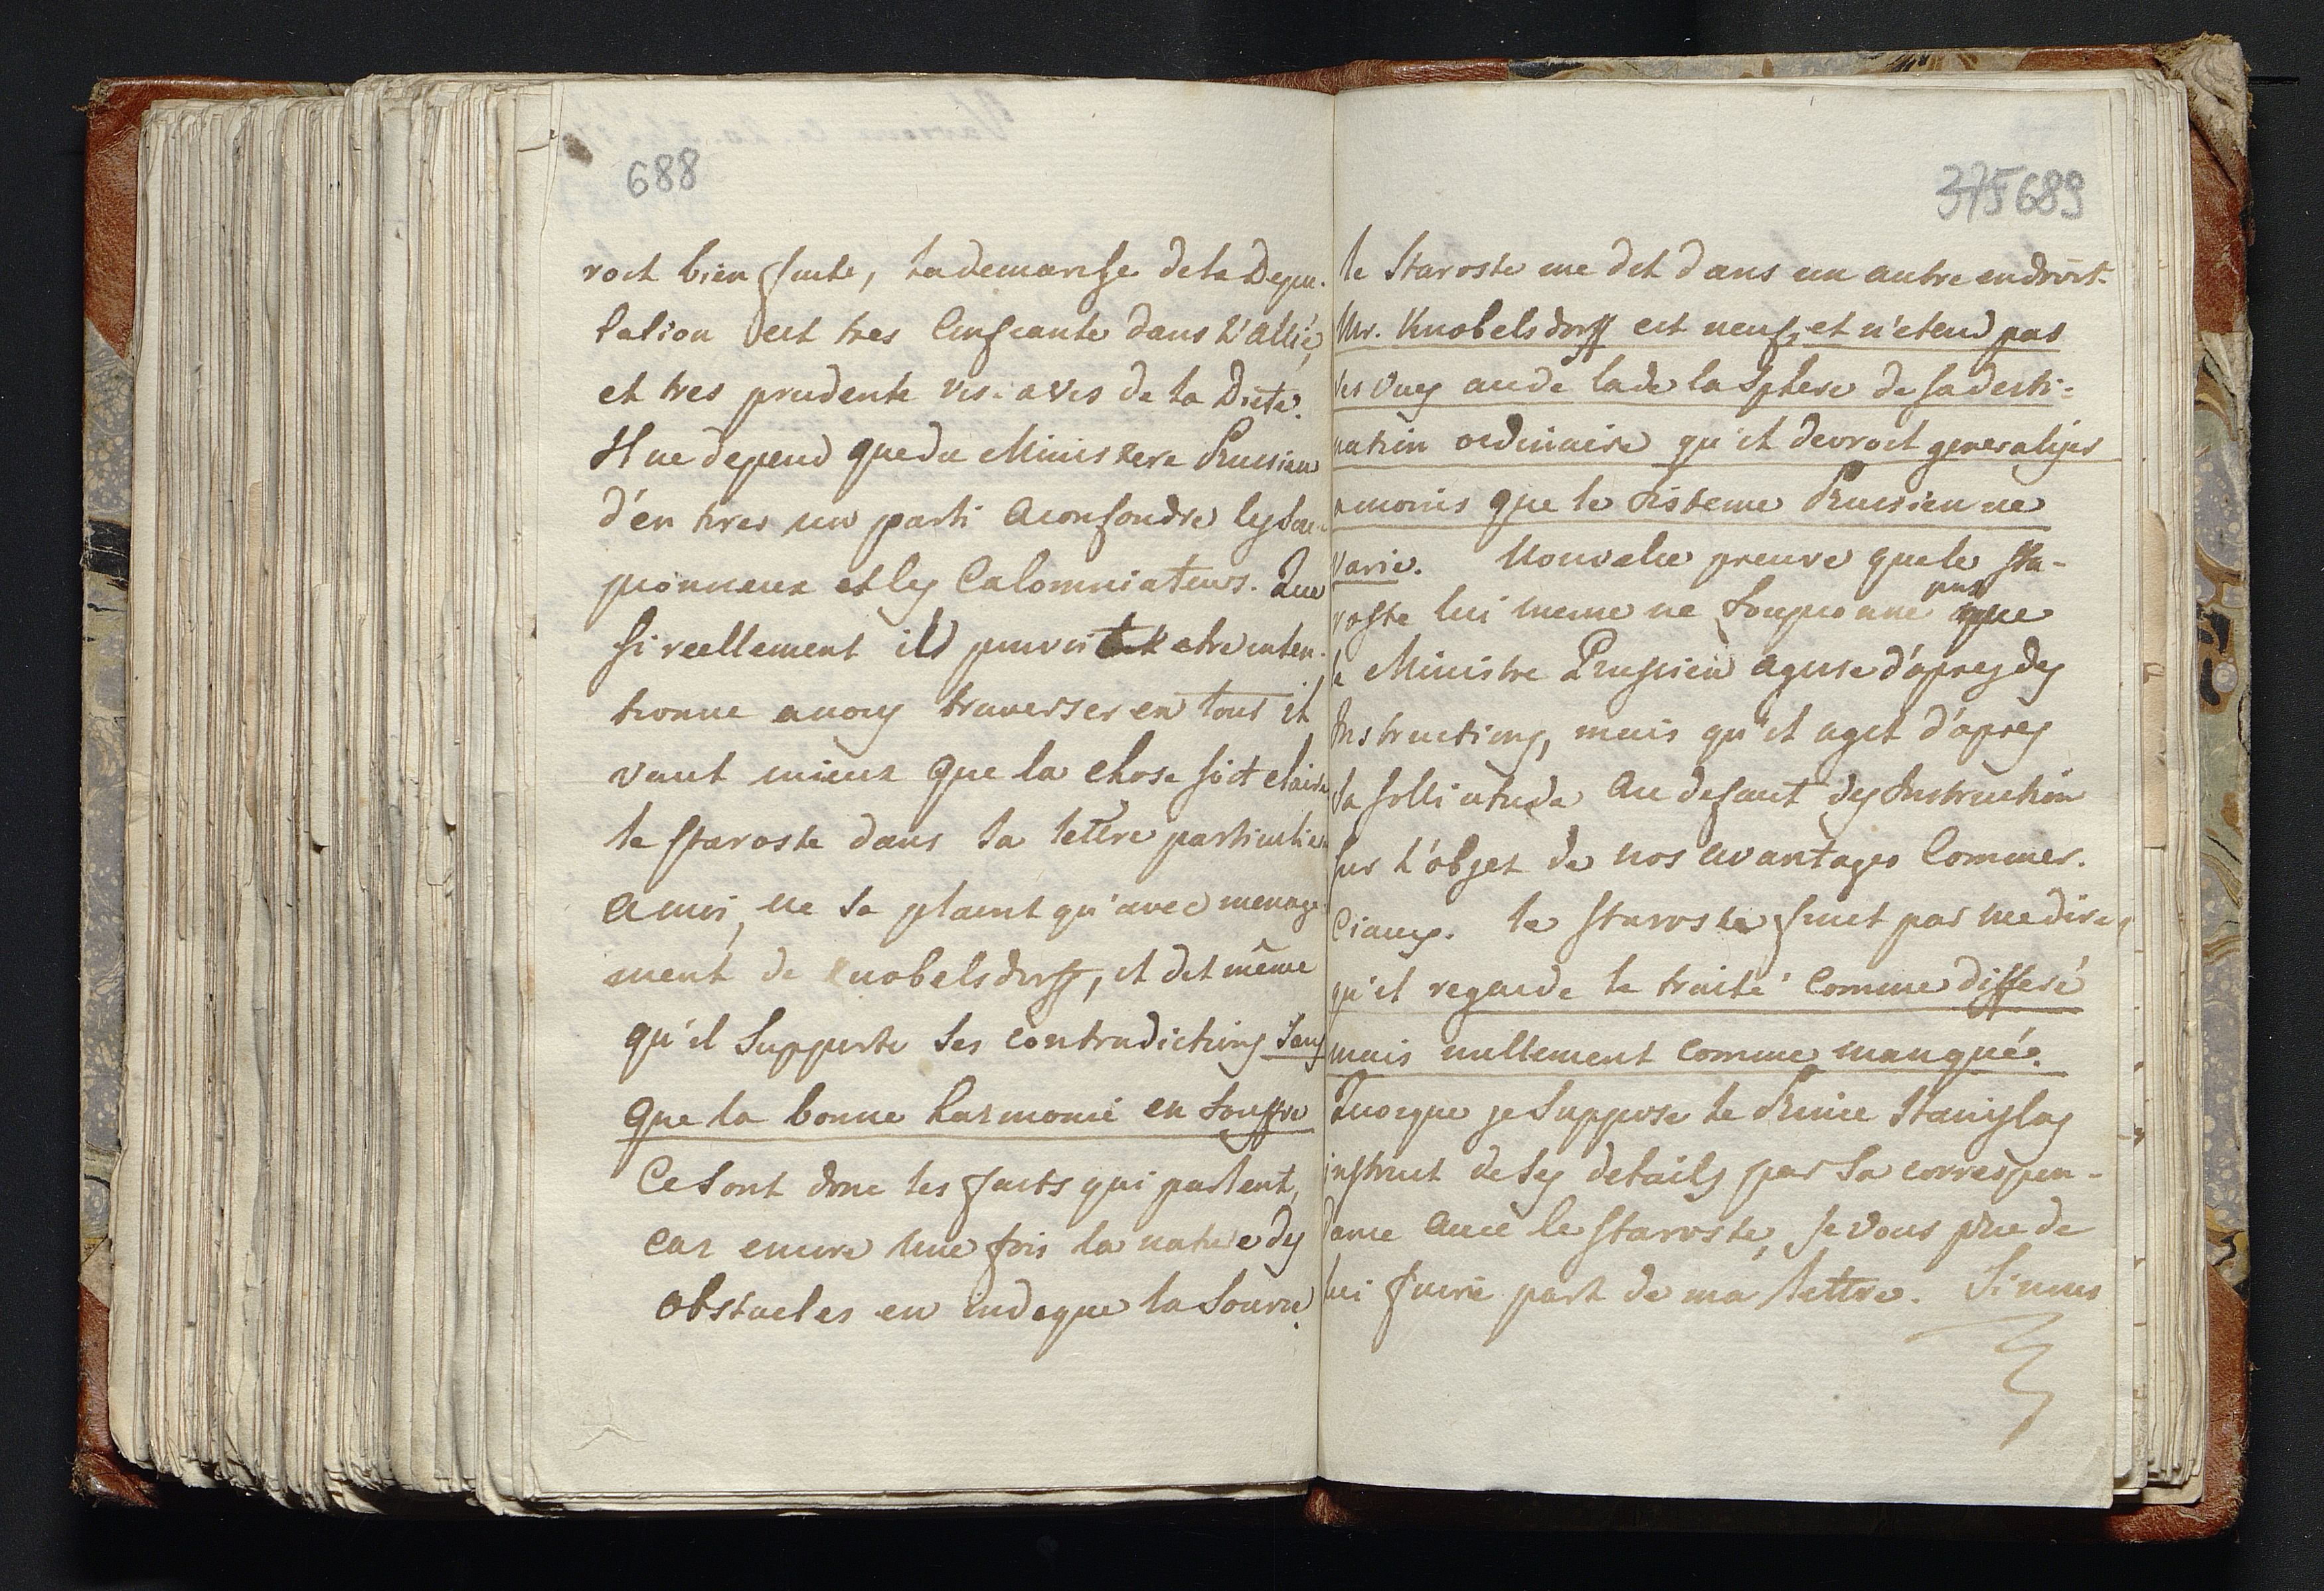 688
roit bien faite, la demarche de la Depu-
tation est tres Confiante dans l'allié,
et tres prudente vis-a vis de la Diete.
Il ne depend que du Ministere Prussien
d'en tirer un parti a confondre les sou-
pionneux et les Calomniateurs. Que
si reellement il pouvoit etre inten-
tionné a nous traverser en tout il
vaut mieux que la chose soit claire
le staroste dans sa lettre particuliere
a moi, ne se plaint qu'avec menage-
ment de Knobelsdorff, et dit même
qu'il supporte ses contradictions sans
que la bonne harmonie en souffre
Ce sont donc les faits qui parlent,
car encore une fois la nature des
obstacles en indique la source.
375 689
le Staroste me dit dans un autre endroit.
Mr. Knobelsdorff est neuf, et n'etend pas
ses vues au de la de la sphere de sa desti-
nation ordinaire qu'il devroit generaliser
a moins que le sisteme Prussien ne
varie. Nouvelle preuve que le sta-
roste lui meme ne soupconne pas que
le Ministre Prussien agisse d'apres des
Instructions, mais qu'il agit d'apres
sa sollicitude au defaut des Instruction
sur l'objet de nos avantages Commer-
ciaux. le staroste finit par me dire,
qu'il regarde le traité comme differé
mais nullement comme manqué.
Quoique je suppose le Prince Stanislas
instruit de ses details par sa correspon-
dance avec le staroste, je vous prie de
lui faire part de ma lettre. Si nous